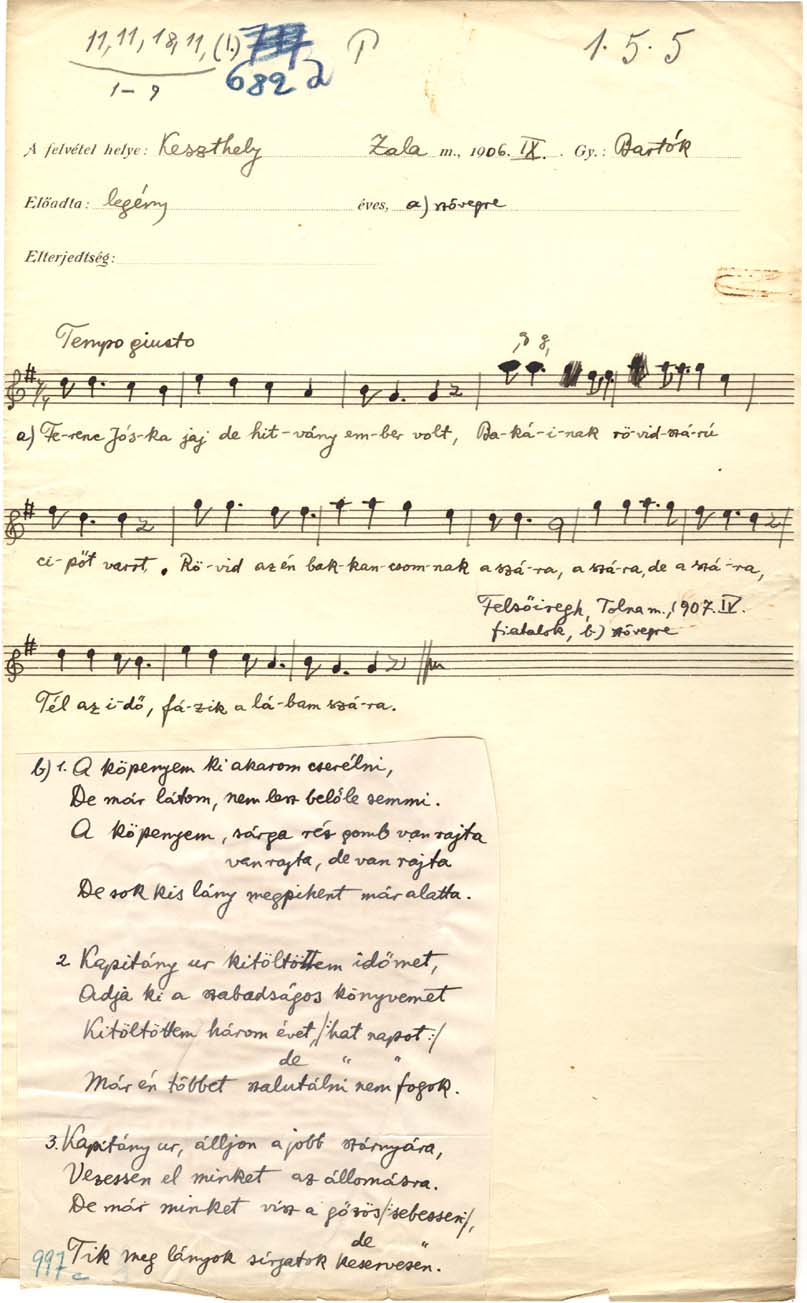 11, 11, 18, 11, (1.) P 1. 5. 5
1–9 682 a
A felvétel helye: Keszthely Zala m., 1906. IX. Gy.: Bartók
Előadta: legény éves, a) szövegre
Elterjedtség:
Tempo giusto
a) Fe-renc Jós-ka jaj de hit-vány em-ber volt, Ba-ká-i-nak rö-vid-szá-rú
ci-pőt varrt. Rö-vid az én bak-kan-csom-nak a szá-ra, a szá-ra, de a szá-ra,
Felsőiregh, Tolna m., 1907. IV.
fiatalok, b.) szövegre
Tél az i-dő, fá-zik a lá-bam szá-ra.
b) 1. A köpenyem ki akarom cserélni,
De már látom, nem lesz belőle semmi.
A köpenyem, sárga réz gomb van rajta
van rajta, de van rajta
De sok kis lány megpihent már alatta.
2 Kapitány ur kitöltöttem időmet,
Adja ki a szabadságos könyvemet
Kitöltöttem három évet, /:hat napot:/
de " "
Már én többet szalutálni nem fogok.
3. Kapitány ur, álljon a jobb szárnyára,
Vezessen el minket az állomásra.
De már minket visz a gőzös /:sebessen:/,
de "
Tik meg lányok sírjatok keservesen.
997